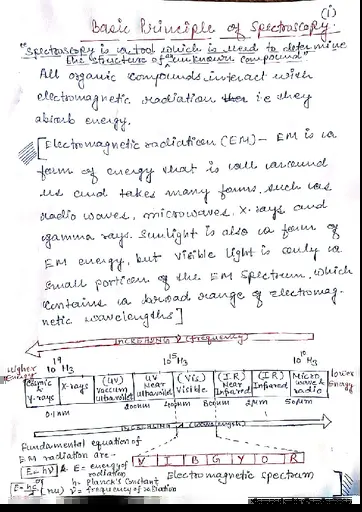 (1)
Basic Principle of Spectroscopy.
"Spectroscopy is a tool which is used to determine
the structure of an unknown compound"
All organic compounds interact with
electromagnetic radiation i.e they
absorb energy.
[Electromagnetic radiation (EM) - EM is a
form of energy that is all around
us and takes many forms, such as
radio waves, microwaves, X-rays and
gamma rays. Sunlight is also a form of
EM energy, but visible light is only a
small portion of the EM spectrum, which
contains a broad range of electromag-
netic wavelengths]
INCREASING ν (frequency)
Higher Energy 10¹⁹ Hz 10¹⁵ Hz 10¹⁰ Hz Lower Energy
Cosmic & γ-rays | X-rays | (UV) Vaccum Ultraviolet | UV Near Ultraviolet | (Vis) Visible | (IR) Near Infrared | (IR) Infrared | Micro wave & radio
0.1nm 200nm 400nm 800nm 2μm 50μm
INCREASING λ (Wavelength)
Fundamental equation of
EM radiation are-
V I B G Y O R
E = hν & E = energy of
radiation
Electromagnetic spectrum
or h = Planck's Constant
(nu) ν = frequency of radiation